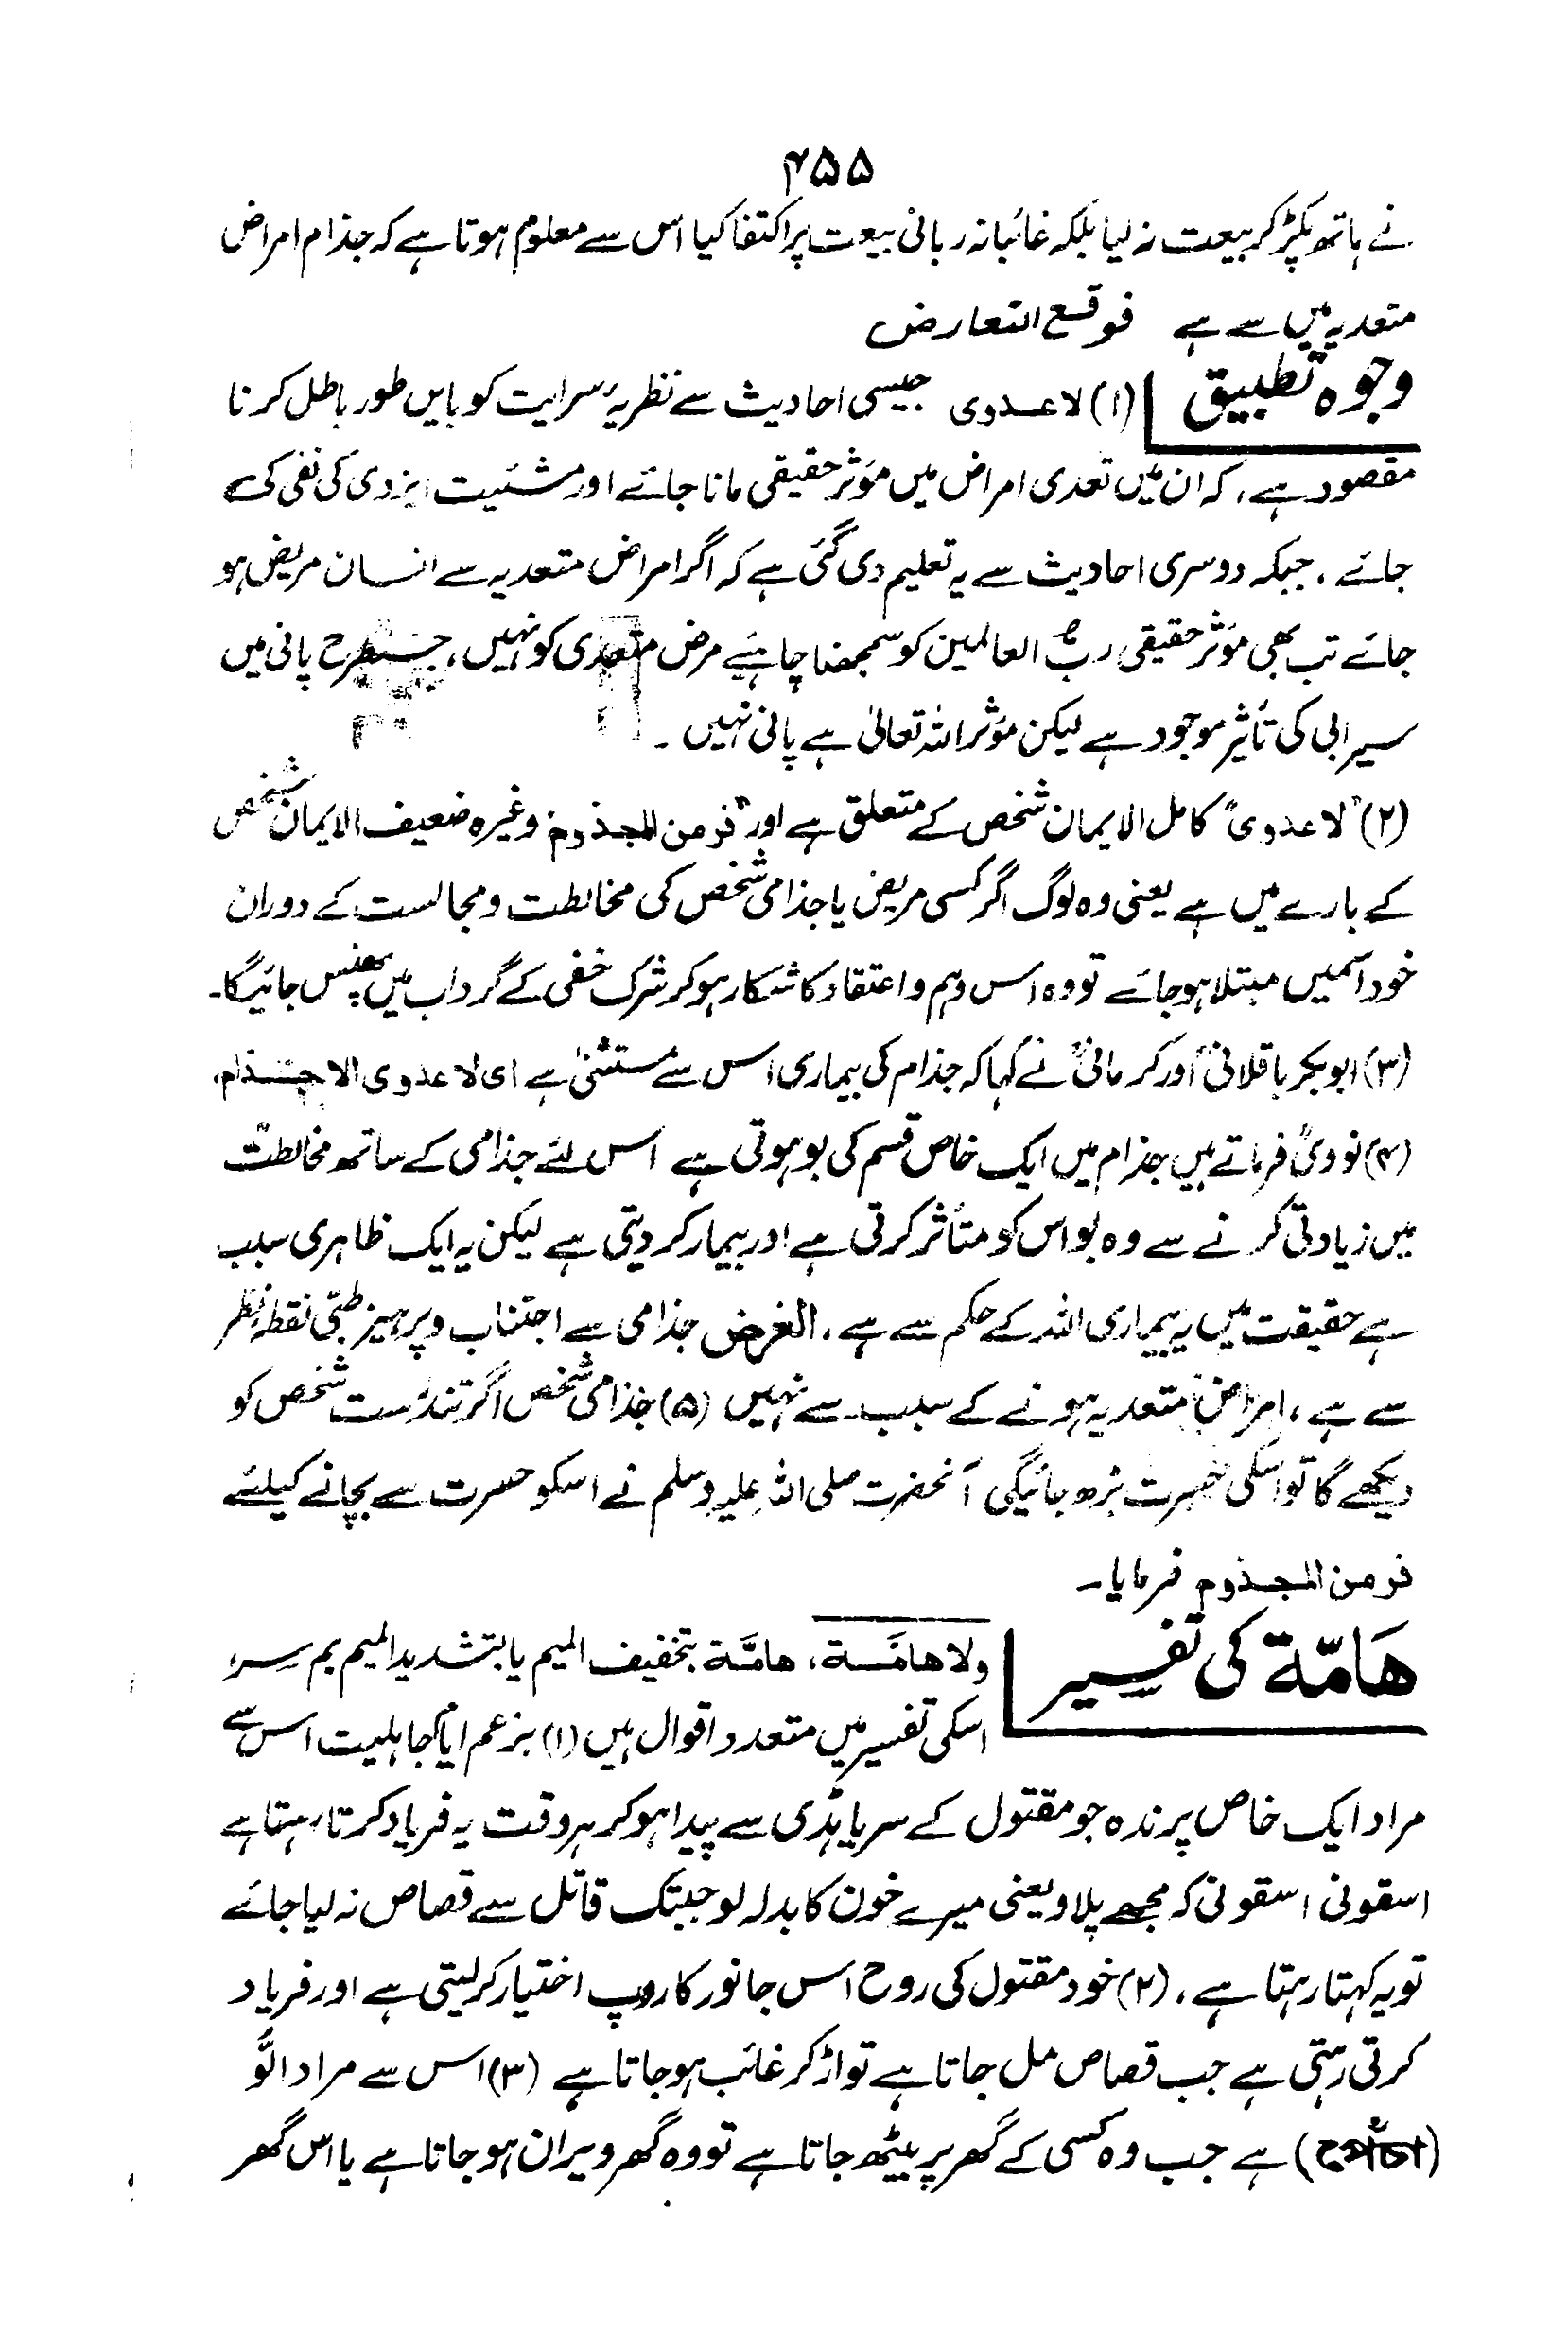 ۴۵۵
نے ہاتھ پکڑ کر بیعت نہ لیا بلکہ غائبانہ ربانی بیعت پر اکتفا کیا اس سے معلوم ہوتا ہے کہ جذام امراض
متعدیہ میں سے ہے فوقع التعارض
وجوہ تطبیق (۱) لاعدوی جیسی احادیث سے نظریۂ سرایت کو بایں طور باطل کرنا
مقصود ہے، کہ ان میں تعدی امراض میں مؤثر حقیقی مانا جائے اور مشئیت ایزدی کی نفی کی
جائے، جبکہ دوسری احادیث سے یہ تعلیم دی گئی ہے کہ اگر امراض متعدیہ سے انسان مریض ہو
جائے تب بھی مؤثر حقیقی ربّ العالمین کو سمجھنا چاہئے مرض متعدی کو نہیں، جسطرح پانی میں
سیرابی کی تأثیر موجود ہے لیکن مؤثر اللہ تعالیٰ ہے پانی نہیں ۔
(۲) "لاعدوی" کامل الایمان شخص کے متعلق ہے اور "فرمن المجذوم" وغیرہ ضعیف الایمان شخص
کے بارے میں ہے یعنی وہ لوگ اگر کسی مریض یا جذامی شخص کی مخالطت و مجالست کے دوران
خود اسمیں مبتلا ہو جائے تو وہ اس وہم و اعتقاد کا شکار ہو کر شرک خفی کے گرداب میں پھنس جائیگا۔
(۳) ابوبکر باقلانیؒ اور کرمانیؒ نے کہا کہ جذام کی بیماری اس سے مستثنیٰ ہے ای لاعدوی الا جذام،
(۴) نوویؒ فرماتے ہیں جذام میں ایک خاص قسم کی بو ہوتی ہے اس لئے جذامی کے ساتھ مخالطت
میں زیادتی کرنے سے وہ بو اس کو متأثر کرتی ہے اور بیمار کر دیتی ہے لیکن یہ ایک ظاہری سبب
ہے حقیقت میں یہ بیماری اللہ کے حکم سے ہے، الغرض جذامی سے اجتناب و پرہیز طبّی نقطۂ نظر
سے ہے، امراض متعدیہ ہونے کے سبب سے نہیں (۵) جذامی شخص اگر تندرست شخص کو
دیکھے گا تو اسکی حسرت بڑھ جائیگی آنحضرت صلی اللہ علیہ وسلم نے اسکو حسرت سے بچانے کیلئے
فرمن المجذوم فرمایا۔
ھَامّة کی تفسیر ولا ھامَة، ھامّة بتخفیف المیم یا بتشدید المیم بم سر،
اسکی تفسیر میں متعدد اقوال ہیں (۱) بزعم ایام جاہلیت اس سے
مراد ایک خاص پرندہ جو مقتول کے سر یا ہڈی سے پیدا ہو کر ہر وقت یہ فریاد کرتا رہتا ہے
اسقونی اسقونی کہ مجھے پلاو یعنی میرے خون کا بدلہ لو جبتک قاتل سے قصاص نہ لیا جائے
تو یہ کہتا رہتا ہے، (۲) خود مقتول کی روح اس جانور کا روپ اختیار کر لیتی ہے اور فریاد
کرتی رہتی ہے جب قصاص مل جاتا ہے تو اڑ کر غائب ہو جاتا ہے (۳) اس سے مراد الّو
ہے جب وہ کسی کے گھر پر بیٹھ جاتا ہے تو وہ گھر ویران ہو جاتا ہے یا اس گھر